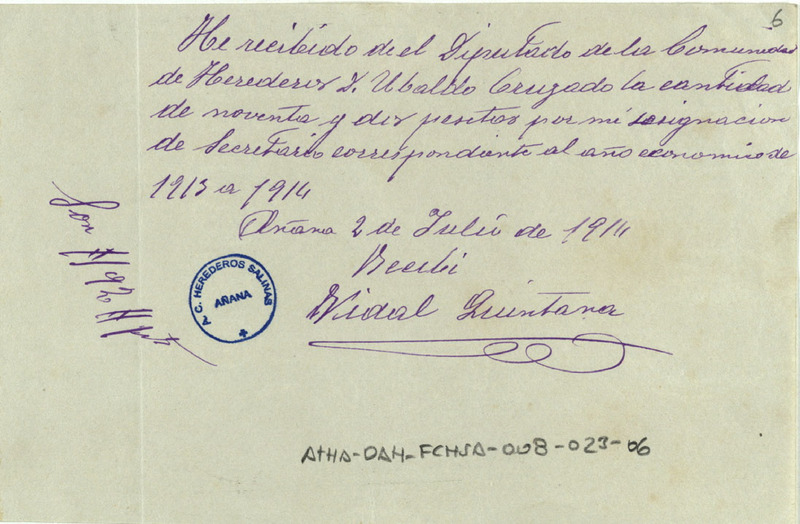 6
He recibido de el Diputado de la Comunidad
de Herederos D. Ubaldo Cruzado la cantidad
de noventa y dos pesetas por mi asignacion
de Secretario correspondiente al año economico de
1913 a 1914
Añana 2 de Julio de 1914
Recibi
Vidal Quintana
Son // 92 // pts
A. C. HEREDEROS SALINAS
AÑANA
ATHA-DAH-FCHSA-008-023-06